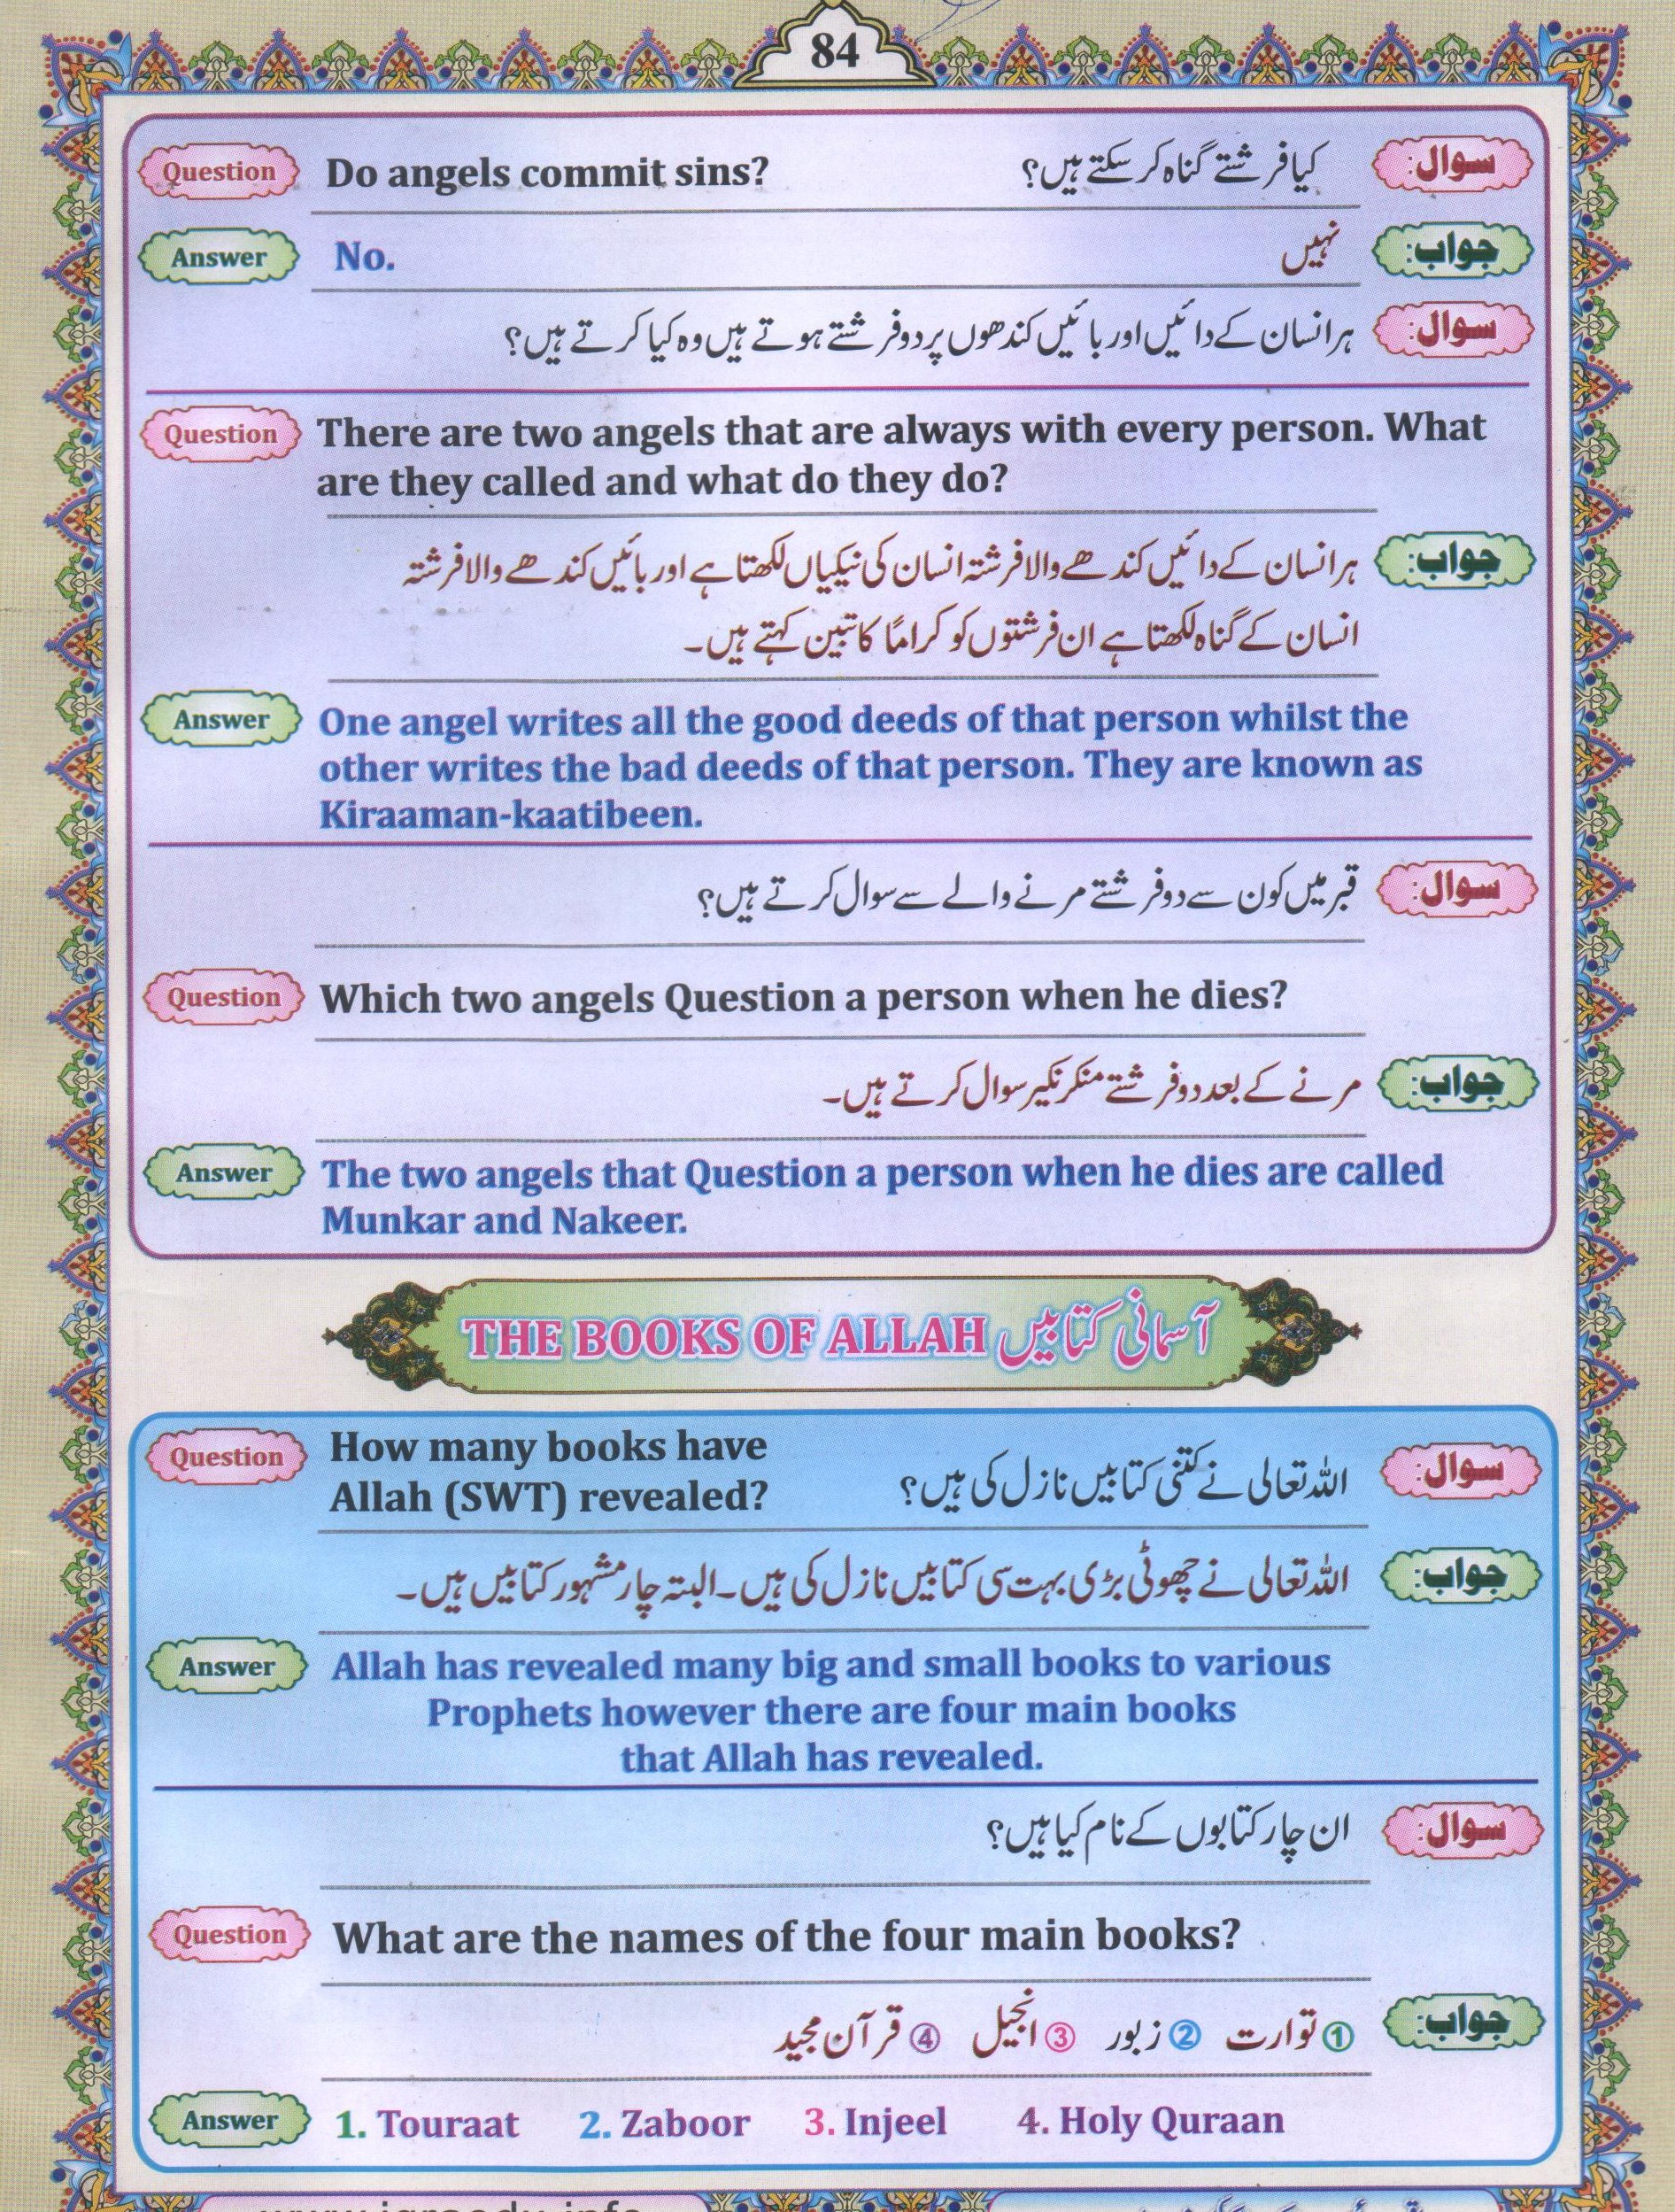 84
Question Do angels commit sins? کیا فرشتے گناہ کر سکتے ہیں؟ سوال:
Answer No. نہیں جواب:
سوال: ہر انسان کے دائیں اور بائیں کندھوں پر دو فرشتے ہوتے ہیں وہ کیا کرتے ہیں؟
Question There are two angels that are always with every person. What
are they called and what do they do?
جواب: ہر انسان کے دائیں کندھے والا فرشتہ انسان کی نیکیاں لکھتا ہے اور بائیں کندھے والا فرشتہ
انسان کے گناہ لکھتا ہے ان فرشتوں کو کراماً کاتبین کہتے ہیں۔
Answer One angel writes all the good deeds of that person whilst the
other writes the bad deeds of that person. They are known as
Kiraaman-kaatibeen.
سوال: قبر میں کون سے دو فرشتے مرنے والے سے سوال کرتے ہیں؟
Question Which two angels Question a person when he dies?
جواب: مرنے کے بعد دو فرشتے منکر نکیر سوال کرتے ہیں۔
Answer The two angels that Question a person when he dies are called
Munkar and Nakeer.
THE BOOKS OF ALLAH آسمانی کتابیں
Question How many books have
Allah (SWT) revealed? اللہ تعالی نے کتنی کتابیں نازل کی ہیں؟ سوال:
جواب: اللہ تعالی نے چھوٹی بڑی بہت سی کتابیں نازل کی ہیں۔ البتہ چار مشہور کتابیں ہیں۔
Answer Allah has revealed many big and small books to various
Prophets however there are four main books
that Allah has revealed.
سوال: ان چار کتابوں کے نام کیا ہیں؟
Question What are the names of the four main books?
جواب: ① توارت ② زبور ③ انجیل ④ قرآن مجید
Answer 1. Touraat 2. Zaboor 3. Injeel 4. Holy Quraan